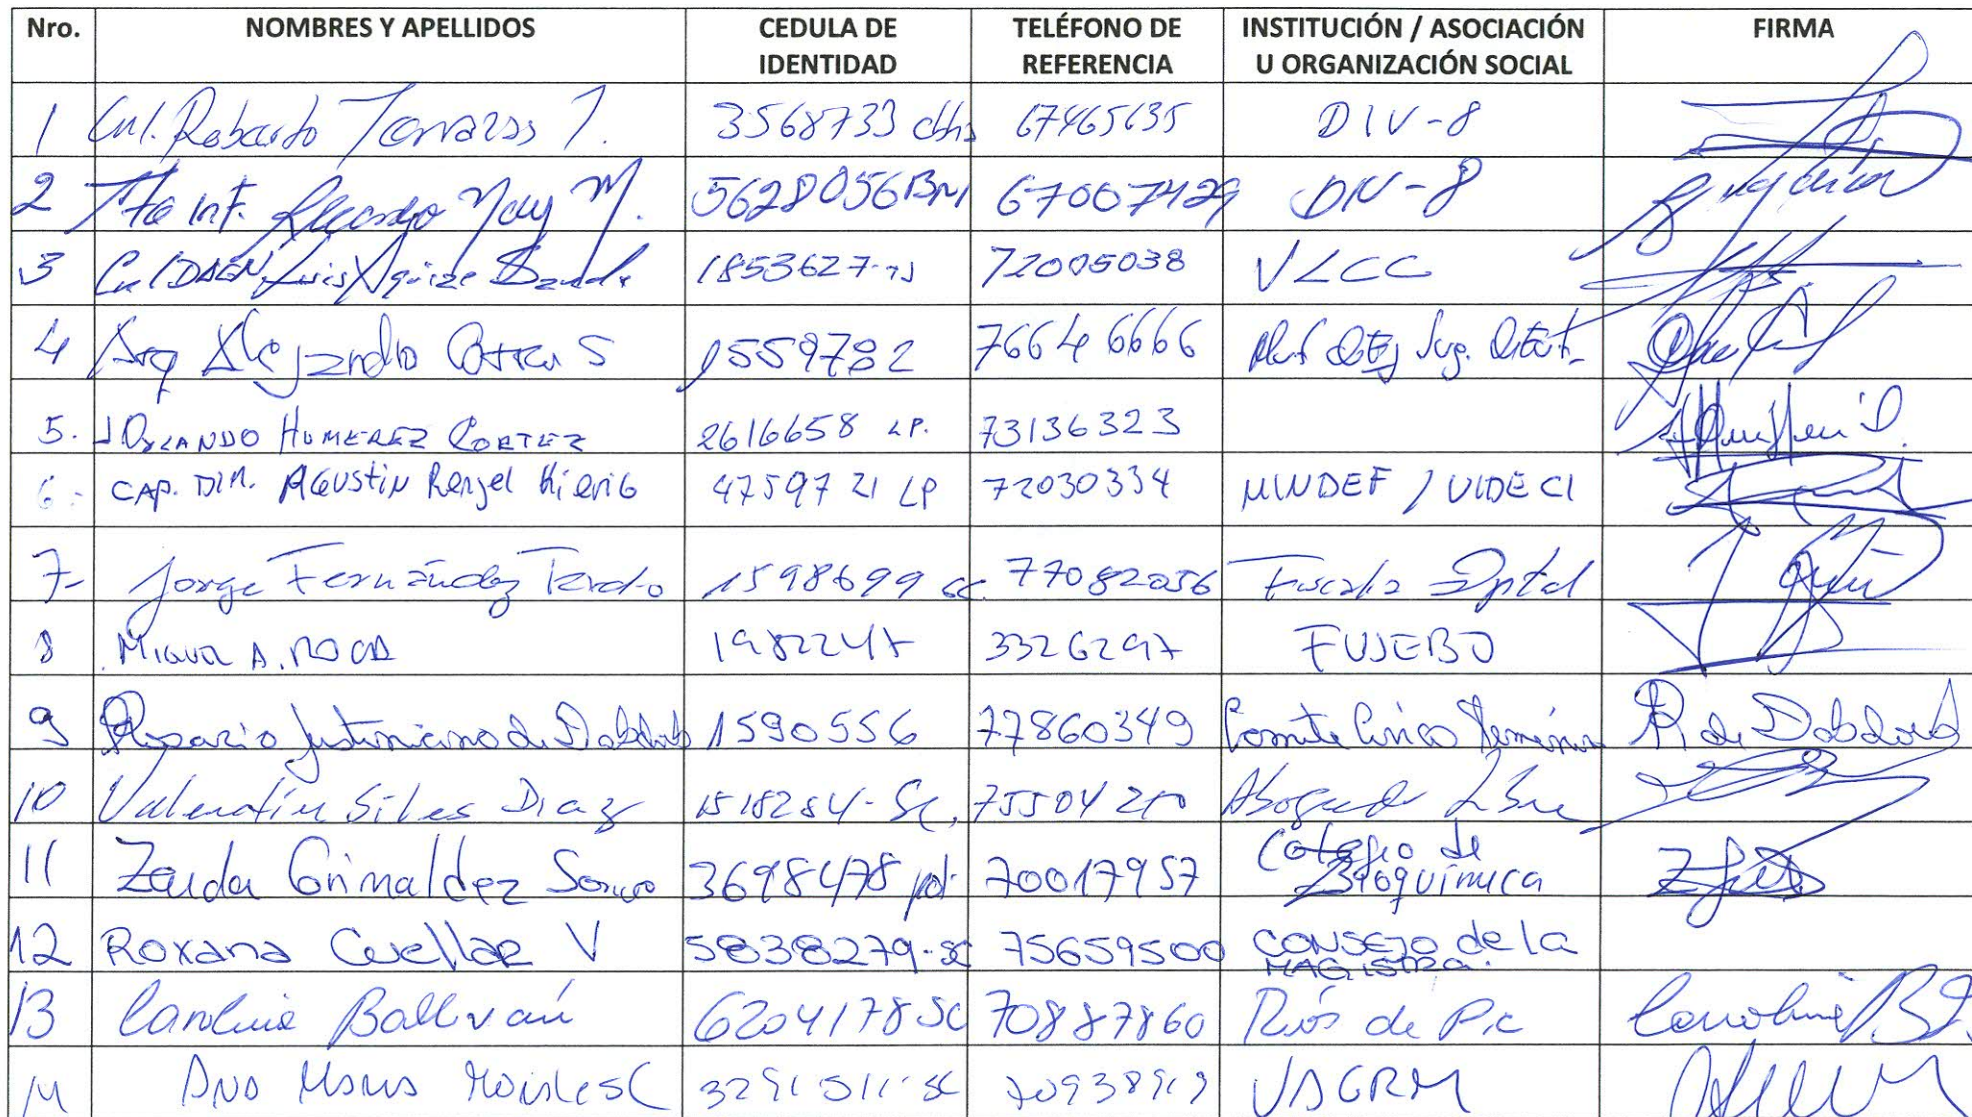 Nro. NOMBRES Y APELLIDOS CEDULA DE IDENTIDAD TELÉFONO DE REFERENCIA INSTITUCIÓN / ASOCIACIÓN U ORGANIZACIÓN SOCIAL FIRMA
1 Cnl. Roberto Terrazas T. 3568733 67465635 DIV-8
2 Inf. Ricardo M. 5628056 67007429 DIV-8
3 Cnl DAEN Luis 1853627 72005038 VLCC
4 Arq Alejandro S 1559782 76646666
5. ORLANDO HUMEREZ CORTEZ 2616658 LP. 73136323
6. CAP. DIM. AGUSTIN Renjel 4759721 LP 72030334 MINDEF / VIDECI
7- Jorge Fernández 1598699 sc. 77082056 Fiscalia Dptal
8 MIGUEL A. ROCA 1982247 3326297
9 Rosario Justiniano de Dabdoub 1590556 77860349 Comite Civico Femenino R de Dabdoub
10 Valentin Siles Diaz Sc. Abogado Libre
11 Zaida Grimaldez 3698478 pot. 70017957 Colegio de Bioquímica
12 Roxana Cuellar V 5838279-sc 75659500 CONSEJO de la MAGISTRA.
13 Caroline Ballivan 6204178 SC 70887860 Rios de Pie Caroline
14 Ana Maria C 3291511-SC 70938919 UAGRM